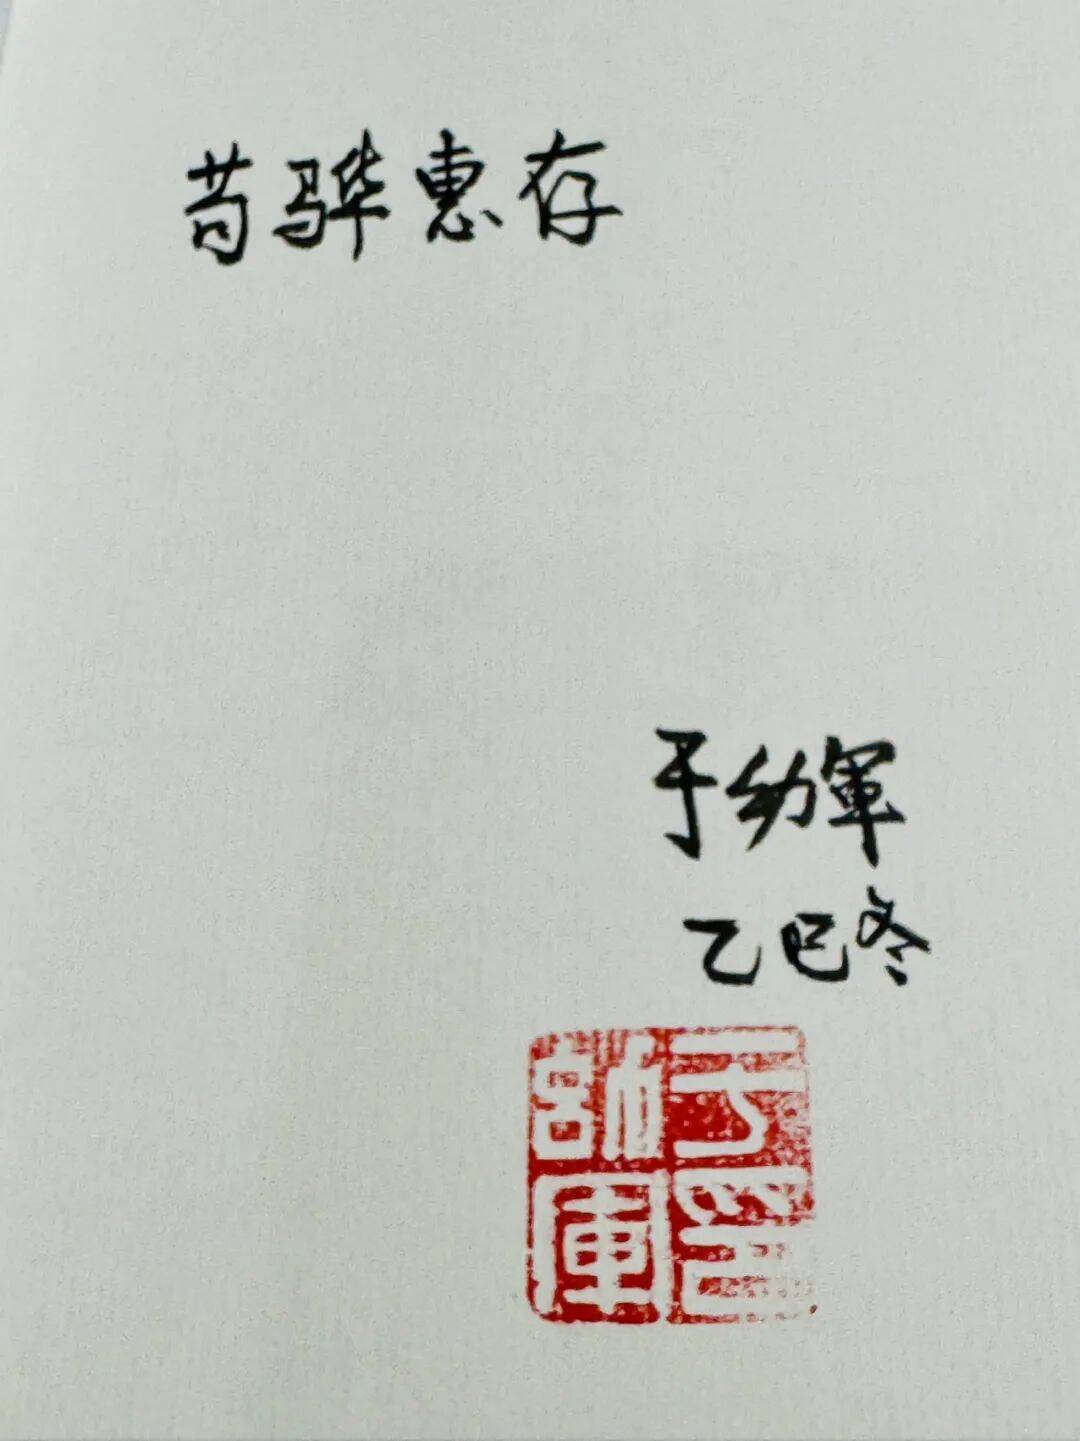 骅惠存
于幼軍
乙巳冬